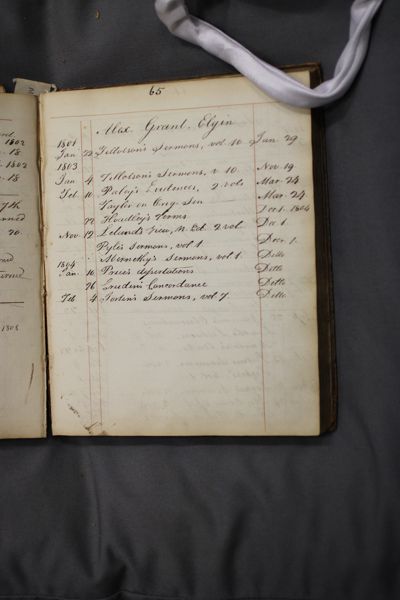 1802
18
1802
18
7th
20
1803
65
Alex. Grant, Elgin
1801
Jan 22 Tillotson's Sermons, vol. 10 Jan. 29
1803
Jan 4 Tillotson's Sermons, v. 10. Nov 19
Feb. 10 Paley's Evidences, 2 vols Mar. 24
Taylor on Orig. Sin Mar. 24
22 Hoadley's Terms Oct. 1. 1804
Nov. 12 Leland's View, n. Ed. 2 vol. Dec 1.
Pyle's Sermons, vol 1 Decr. 1.
1804 Sermons, vol 1. Ditto
Jan. 10 Price's dissertations Ditto
26 Cruden's Concordance Ditto
Feb 4 Jortin's Sermons, vol 7. Ditto